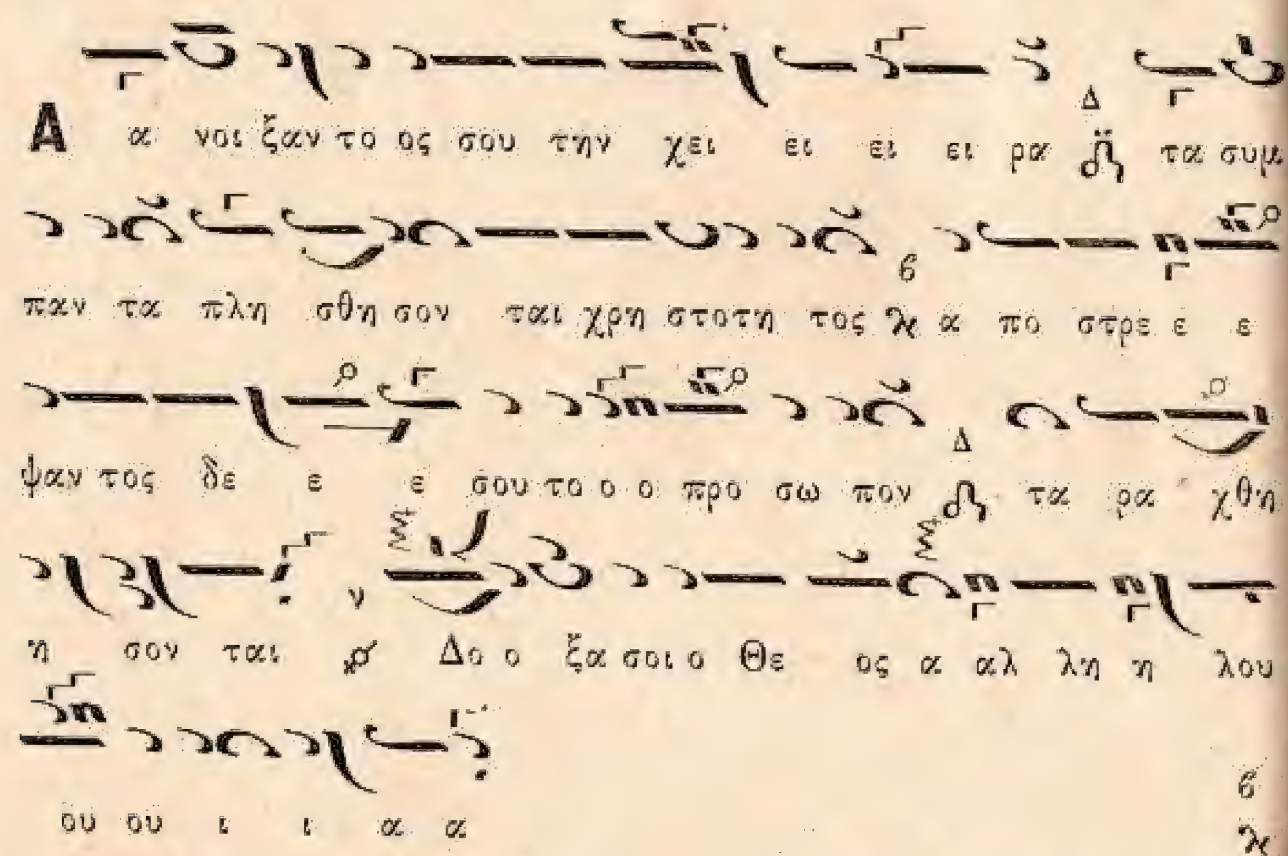 Α α νοι ξαν το ος σου την χει ει ει ει ρα Δ τα συμ
παν τα πλη σθη σον ται χρη στοτη τος ϐ α πο στρε ε ε
ψαν τος δε ε ε σου το ο ο προ σω πον Δ τα ρα χθη
η σον ται ν Δο ο ξα σοι ο Θε ος α αλ λη η λου
ου ου ι ι α α ϐ